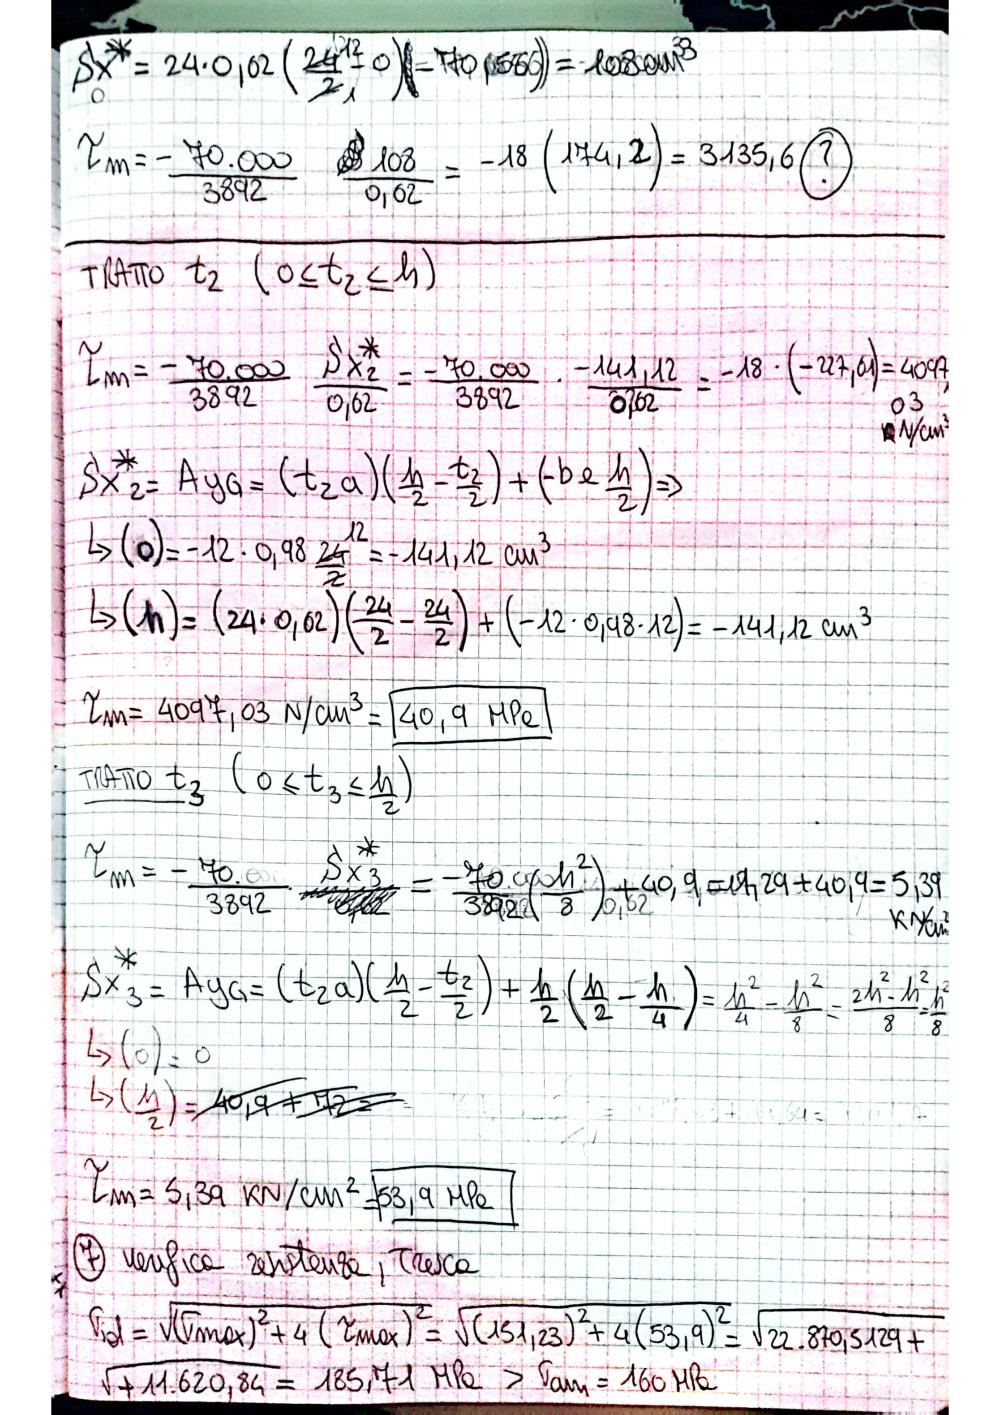 Sx* = 24·0,62 (24/2 - 0) = 108 cm³
0
τm = - 70.000/3892 108/0,62 = -18 (174,2) = 3135,6 (?)
TRATTO t2 (0≤t2≤h)
τm = - 70.000/3892 Sx*2/0,62 = - 70.000/3892 · -141,12/0,62 = -18 · (-227,61) = 4097,
03
N/cm³
Sx*2 = AyG = (t2a)(h/2 - t2/2) + (-be h/2) ⇒
↳ (0) = -12·0,98 24/2 12 = -141,12 cm³
↳ (h) = (24·0,62)(24/2 - 24/2) + (-12·0,98·12) = -141,12 cm³
τm = 4097,03 N/cm³ = 40,9 MPa
TRATTO t3 (0≤t3≤h/2)
τm = - 70.000/3892 · Sx*3 = -70.000/3892 (h²/8) + 40,9 = + 40,9 = 5,39
KN/cm²
Sx*3 = AyG = (t2a)(h/2 - t2/2) + h/2 (h/2 - h/4) = h²/4 - h²/8 = 2h²-h²/8 = h²/8
↳ (0) = 0
↳ (h/2) = 40,9 + 72 =
τm = 5,39 KN/cm² = 53,9 MPa
7 verifica resistenza, Tresca
σid = √(σmax)² + 4(τmax)² = √(151,23)² + 4(53,9)² = √22.870,5129 +
√+11.620,84 = 185,71 MPa > σam = 160 MPa